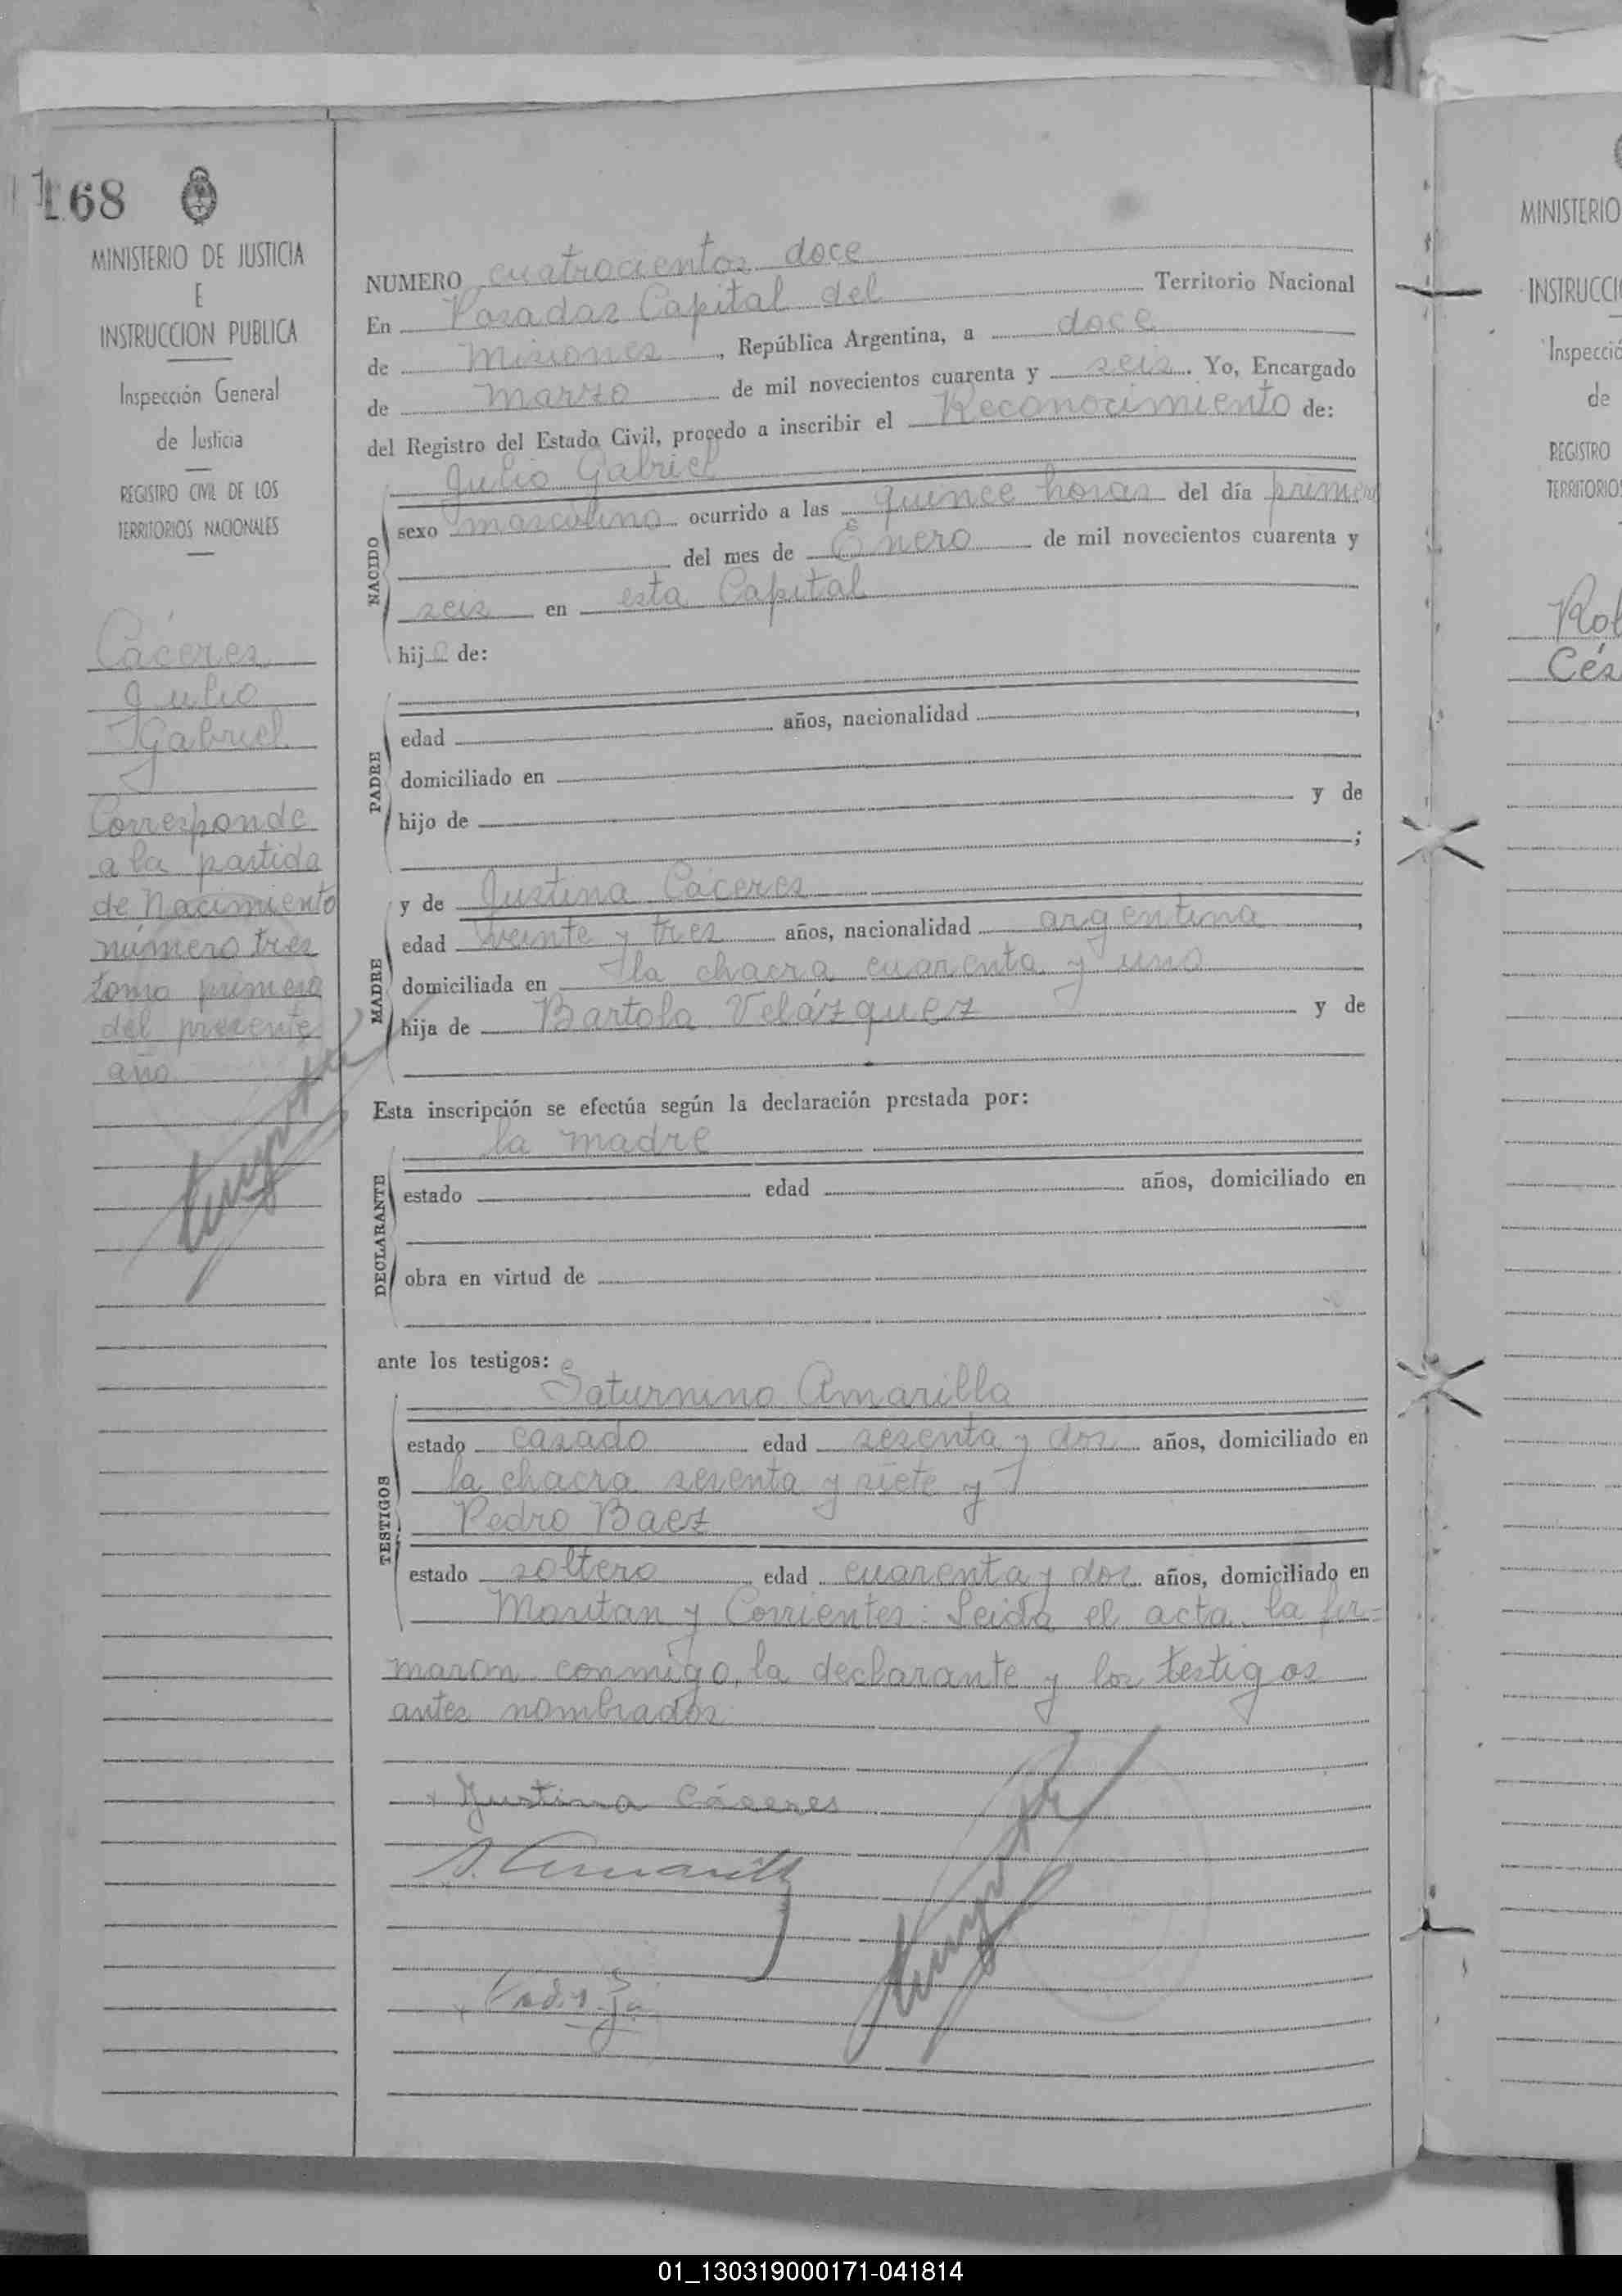 168
MINISTERIO DE JUSTICIA
E
INSTRUCCION PUBLICA
Inspección General
de Justicia
REGISTRO CIVIL DE LOS
TERRITORIOS NACIONALES
Cáceres
Julio
Gabriel
Corresponde
a la partida
de Nacimiento
número tres
tomo primero
del presente
año
NUMERO cuatrocientos doce
En Posadas Capital del Territorio Nacional
de Misiones, República Argentina, a doce
de marzo de mil novecientos cuarenta y seis. Yo, Encargado
del Registro del Estado Civil, procedo a inscribir el Reconocimiento de:
Julio Gabriel
NACIDO
sexo masculino ocurrido a las quince horas del día primero
del mes de Enero de mil novecientos cuarenta y
seis en esta Capital
hijo de:
PADRE
edad años, nacionalidad ,
domiciliado en
hijo de y de
;
MADRE
y de Justina Cáceres
edad veinte y tres años, nacionalidad argentina,
domiciliada en la chacra cuarenta y uno
hija de Bartola Velázquez y de
Esta inscripción se efectúa según la declaración prestada por:
la madre
DECLARANTE
estado edad años, domiciliado en
obra en virtud de
ante los testigos:
Saturnino Amarilla
TESTIGOS
estado casado edad sesenta y dos años, domiciliado en
la chacra sesenta y siete y
Pedro Baez
estado soltero edad cuarenta y dos años, domiciliado en
y Corrientes: Leida el acta, la fir-
maron conmigo, la declarante y los testigos
antes nombrados
Justina Cáceres
S. Amarilla
MINISTERIO
INSTRUCCI
Inspecció
de
REGISTRO
TERRITORIOS
Rol
Cés
01_130319000171-041814